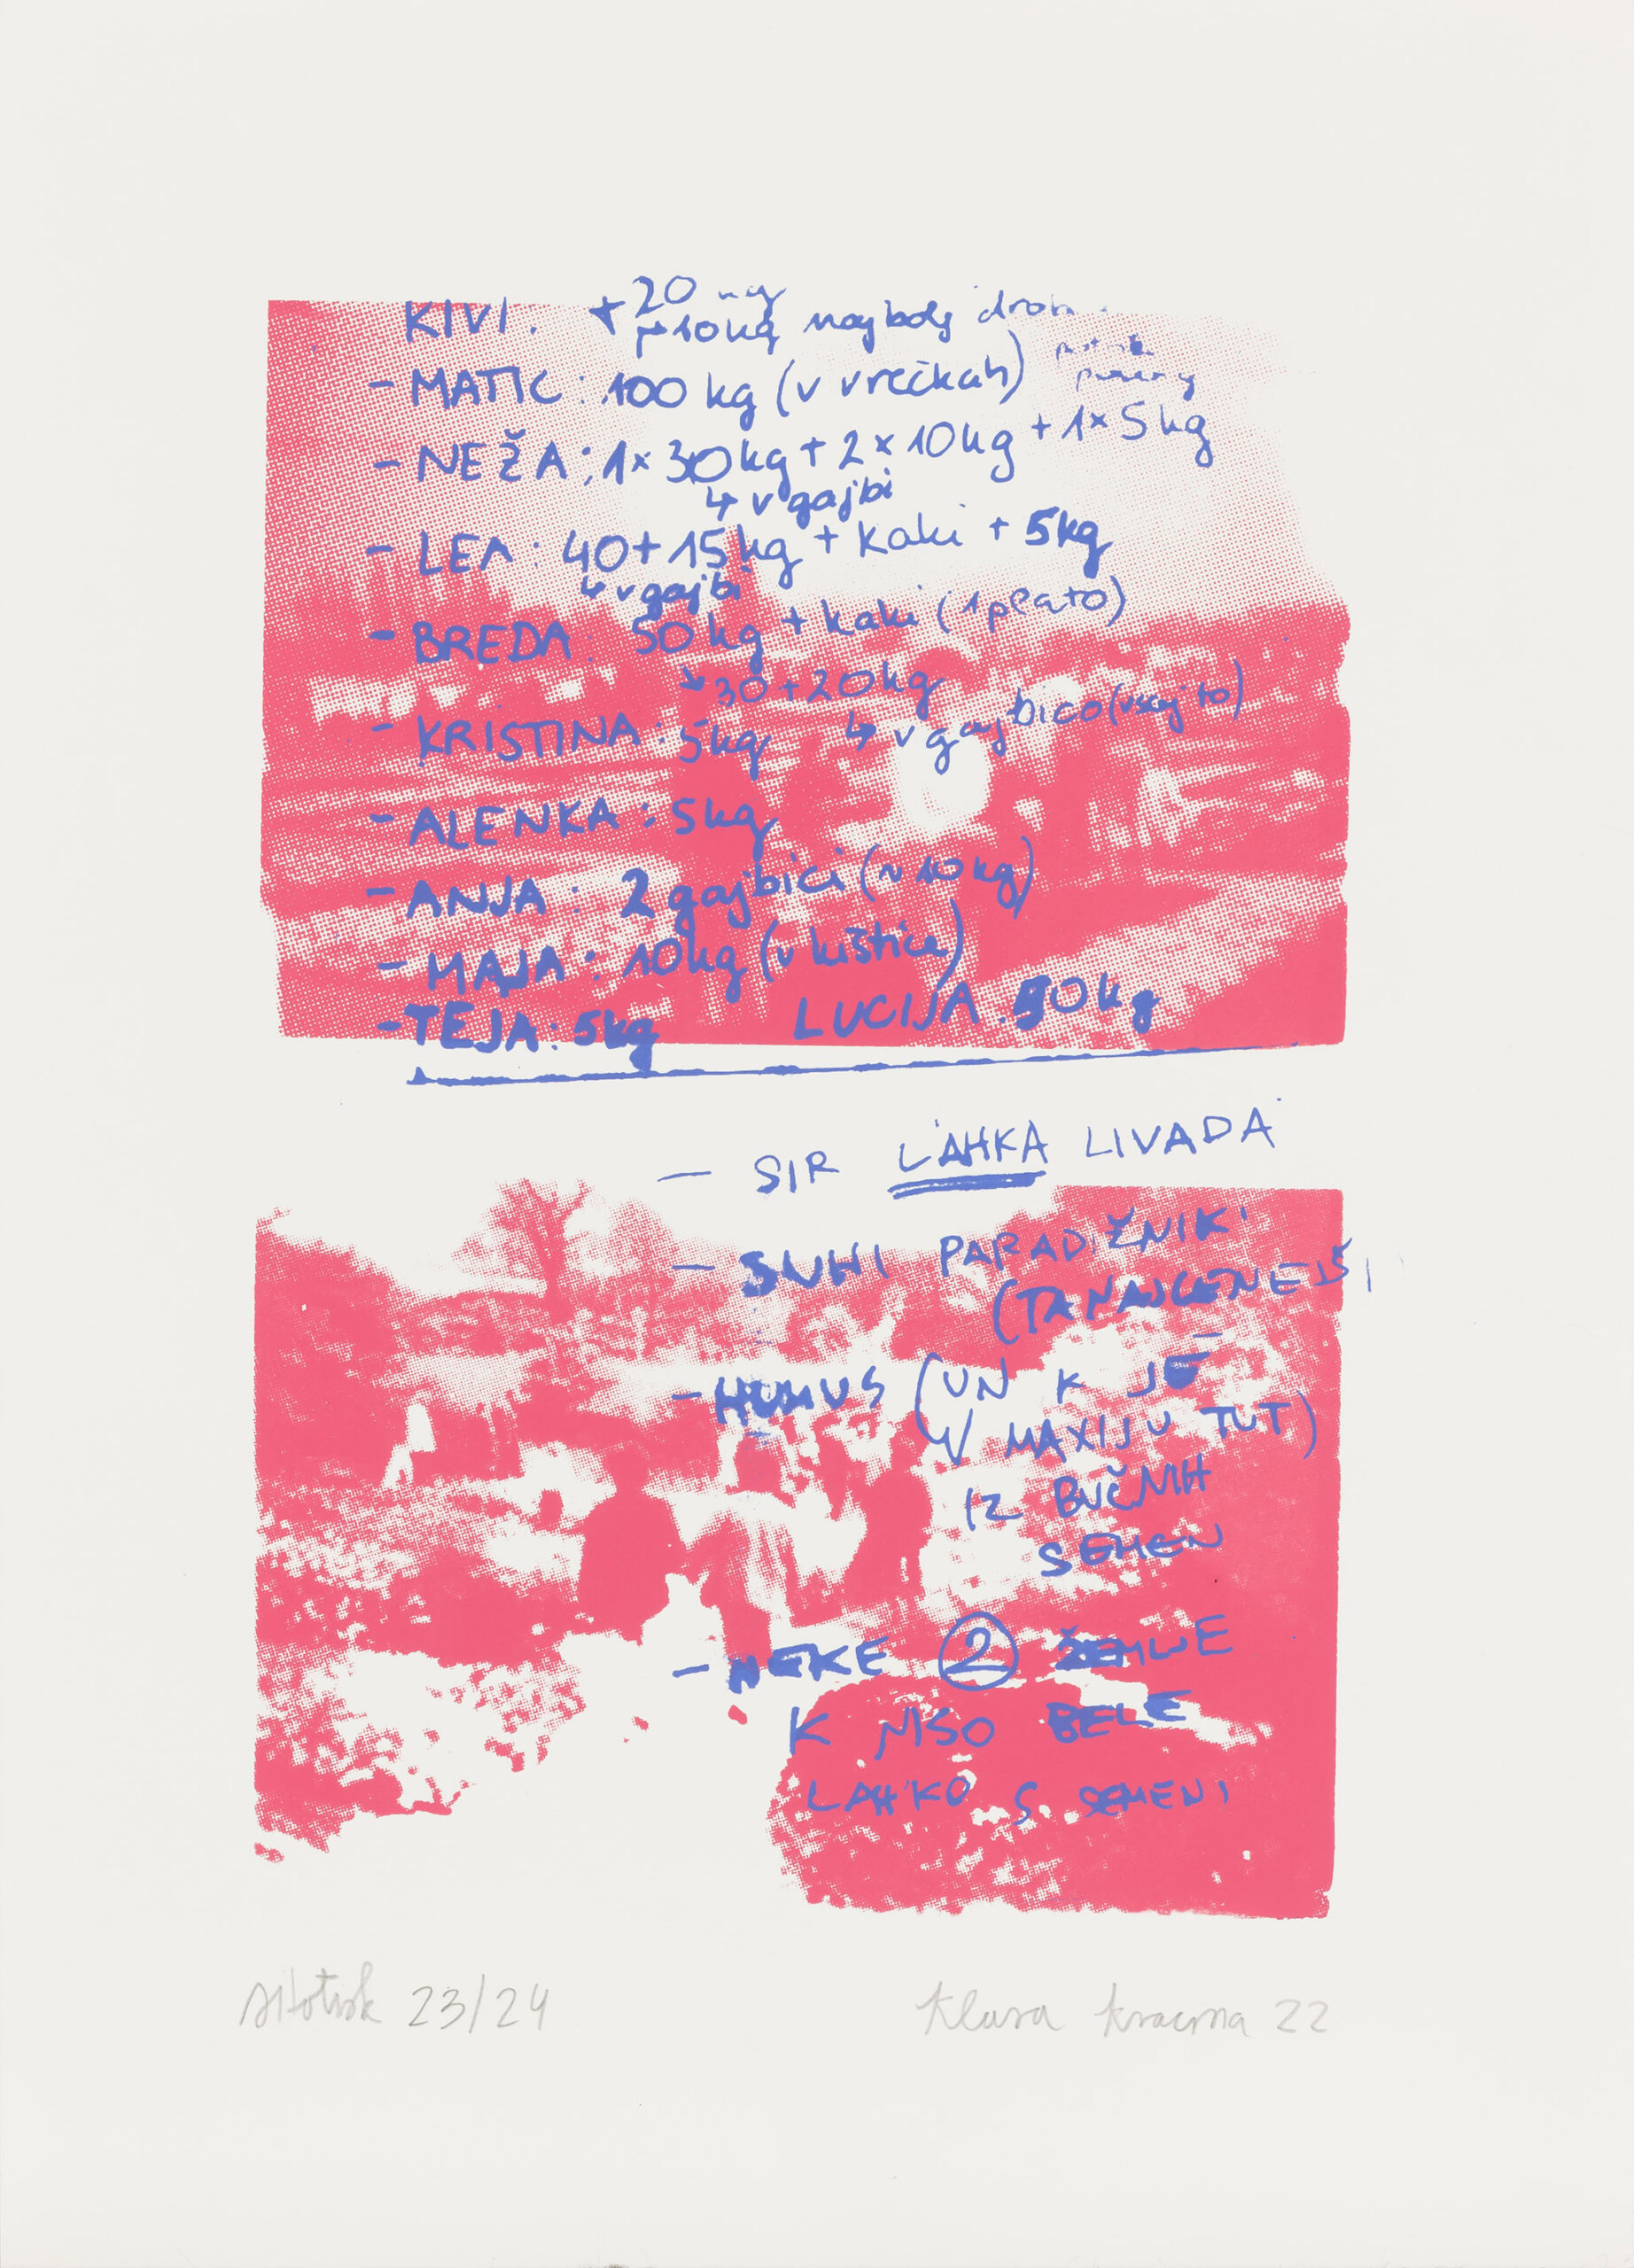 KIVI: + 20 kg
+10kg najbolj drob
- MATIC: 100 kg (v vrečkah)
- NEŽA: 1x 30kg + 2 x 10kg + 1x 5kg
↳ v gajbi
- LEA: 40+15kg + kaki + 5kg
↳ v gajbi
- BREDA: 50kg + kaki (1 plato)
↘ 30+20kg
↳ v gajbico (vsaj to)
- KRISTINA: 5kg
- ALENKA: 5kg
- ANJA: 2 gajbici (~10kg)
- MAJA: 10kg (v kištice)
- TEJA: 5kg LUCIJA: 50kg
- SIR LAHKA LIVADA
- SUHI PARADIŽNIKI
(TA NAJCENEJŠI
- HUMUS (UN K JE
V MAXIJU TUT)
IZ BUČNIH
SEMEN
- NEKE 2 ŽEMLJE
K NISO BELE
LAHKO S SEMENI
sitotisk 23/24
Klara Kracina 22